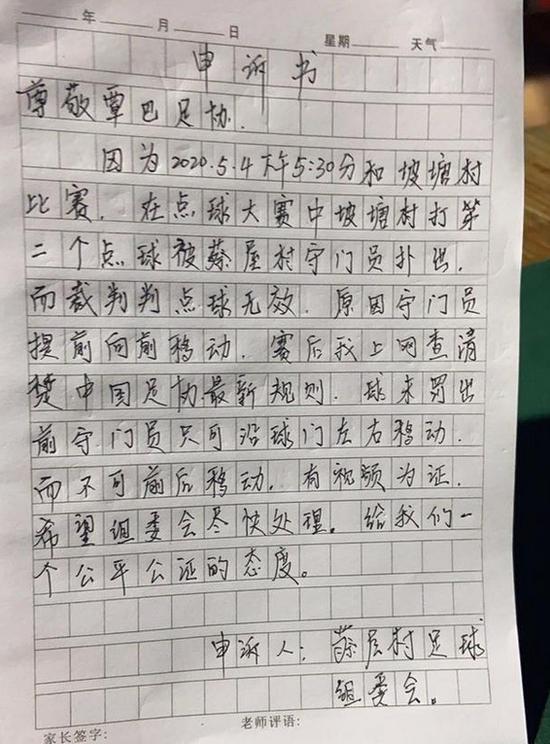 年 月 日 星期 天气
申诉书
尊敬覃巴足协.
因为2020.5.4下午5:30分和坡塘村
比赛. 在点球大赛中坡塘村打第
二个点球被蔡屋村守门员扑出.
而裁判判点球无效. 原因守门员
提前向前移动. 赛后我上网查清
楚中国足协最新规则. 球未罚出
前守门员只可沿球门左右移动.
而不可前后移动. 有视频为证.
希望组委会尽快处理。给我们一
个公平公证的态度。
申诉人: 蔡屋村足球
组委会.
家长签字: 老师评语: